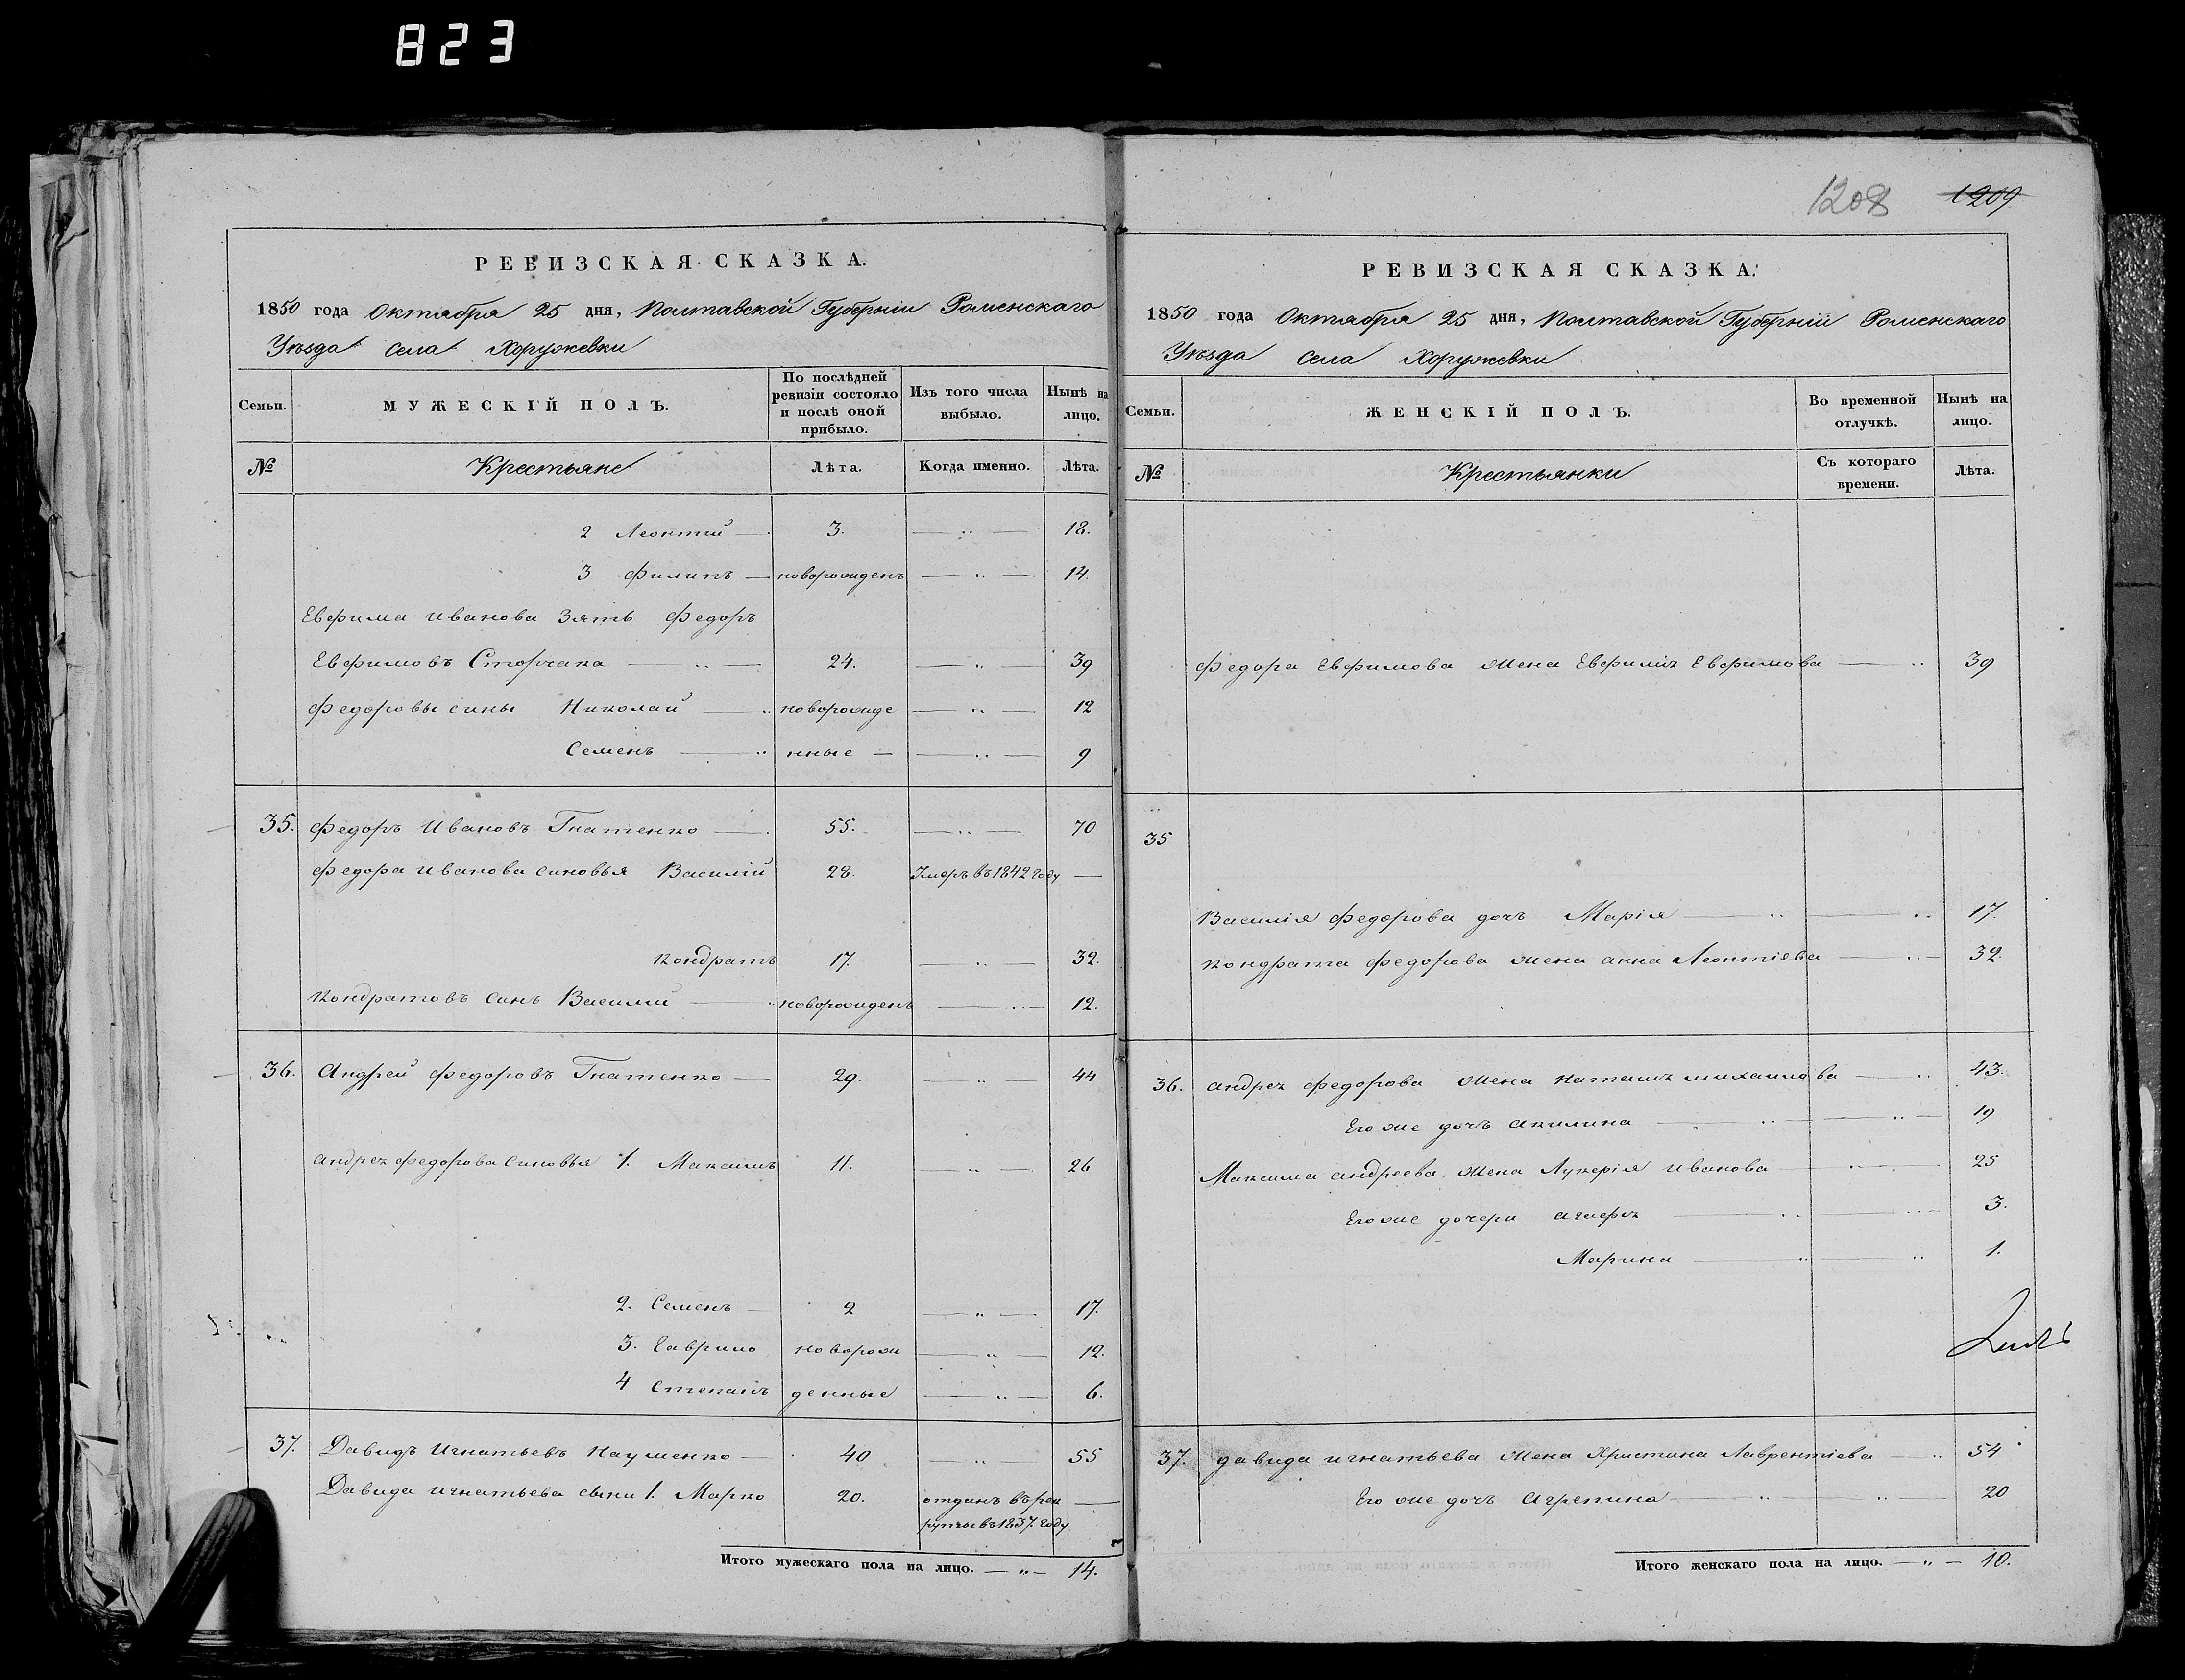 823
РЕВИЗСКАЯ СКАЗКА.
1850 года Октября 25 дня, Полтавской Губерніи Роменскаго
Уѣзда села Хоружевки
Семьи.
МУЖЕСКІЙ ПОЛЪ.
По послѣдней ревизіи состояло и послѣ оной прибыло.
Изъ того числа выбыло.
Нынѣ на лицо.
№ Крестьяне Лѣта. Когда именно. Лѣта.
2 Леонтій — 3. — „ — 18.
3 Филипъ — новорожденъ — „ — 14.
Евфима Иванова Зять Федоръ
Евфимовъ Сторчака — „ — 24. — „ — 39
Федоровы сины Николай — „ новорожде — „ — 12
Семенъ — „ нные — — „ — 9
35. Федоръ Ивановъ Гнатенко — 55. — „ — 70
Федора Иванова синовья Василій 28. Умеръ въ 1842 году —
Кондратъ 17. — „ — 32.
Кондратовъ синъ Василій — „ новорожденъ — „ — 12.
36. Андрей Федоровъ Гнатенко — 29. — „ — 44
Андрея Федорова синовья 1. Максимъ 11. — „ — 26
2. Семенъ — 2 — „ — 17.
3. Гаврило новорож — „ — 12.
4 Степанъ денные — „ — 6.
37. Давидъ Игнатьевъ Науменко — 40 — „ — 55
Давида Игнатьева сыни 1. Марко 20. отданъ въ рек —
руты въ 1837. году
Итого мужескаго пола на лицо. — „ — 14.
1208 1209
РЕВИЗСКАЯ СКАЗКА.
1850 года Октября 25 дня, Полтавской Губерніи Роменскаго
Уѣзда села Хоружевки
Семьи.
ЖЕНСКІЙ ПОЛЪ.
Во временной отлучкѣ.
Нынѣ на лицо.
№ Крестьянки Съ котораго времени. Лѣта.
Федора Евфимова жена Евфимія Евфимова — „ 39
35
Василія Федорова дочъ Марія — „ — „ 17.
Кондрата Федорова жена Анна Леонтіева — „ — 32.
36. Андрея Федорова жена Наталія Михайлова — „ 43.
Его же дочъ Акилина — „ — „ — 19
Максима Андреева жена Лукерія Иванова — „ — 25
Его же дочери Агафія — „ — „ — 3.
Марина — „ — „ 1.
37. Давида Игнатьева жена Христина Лаврентіева — „ 54
Его же дочъ Агрепина — „ — „ — 20
Итого женскаго пола на лицо. — „ — 10.